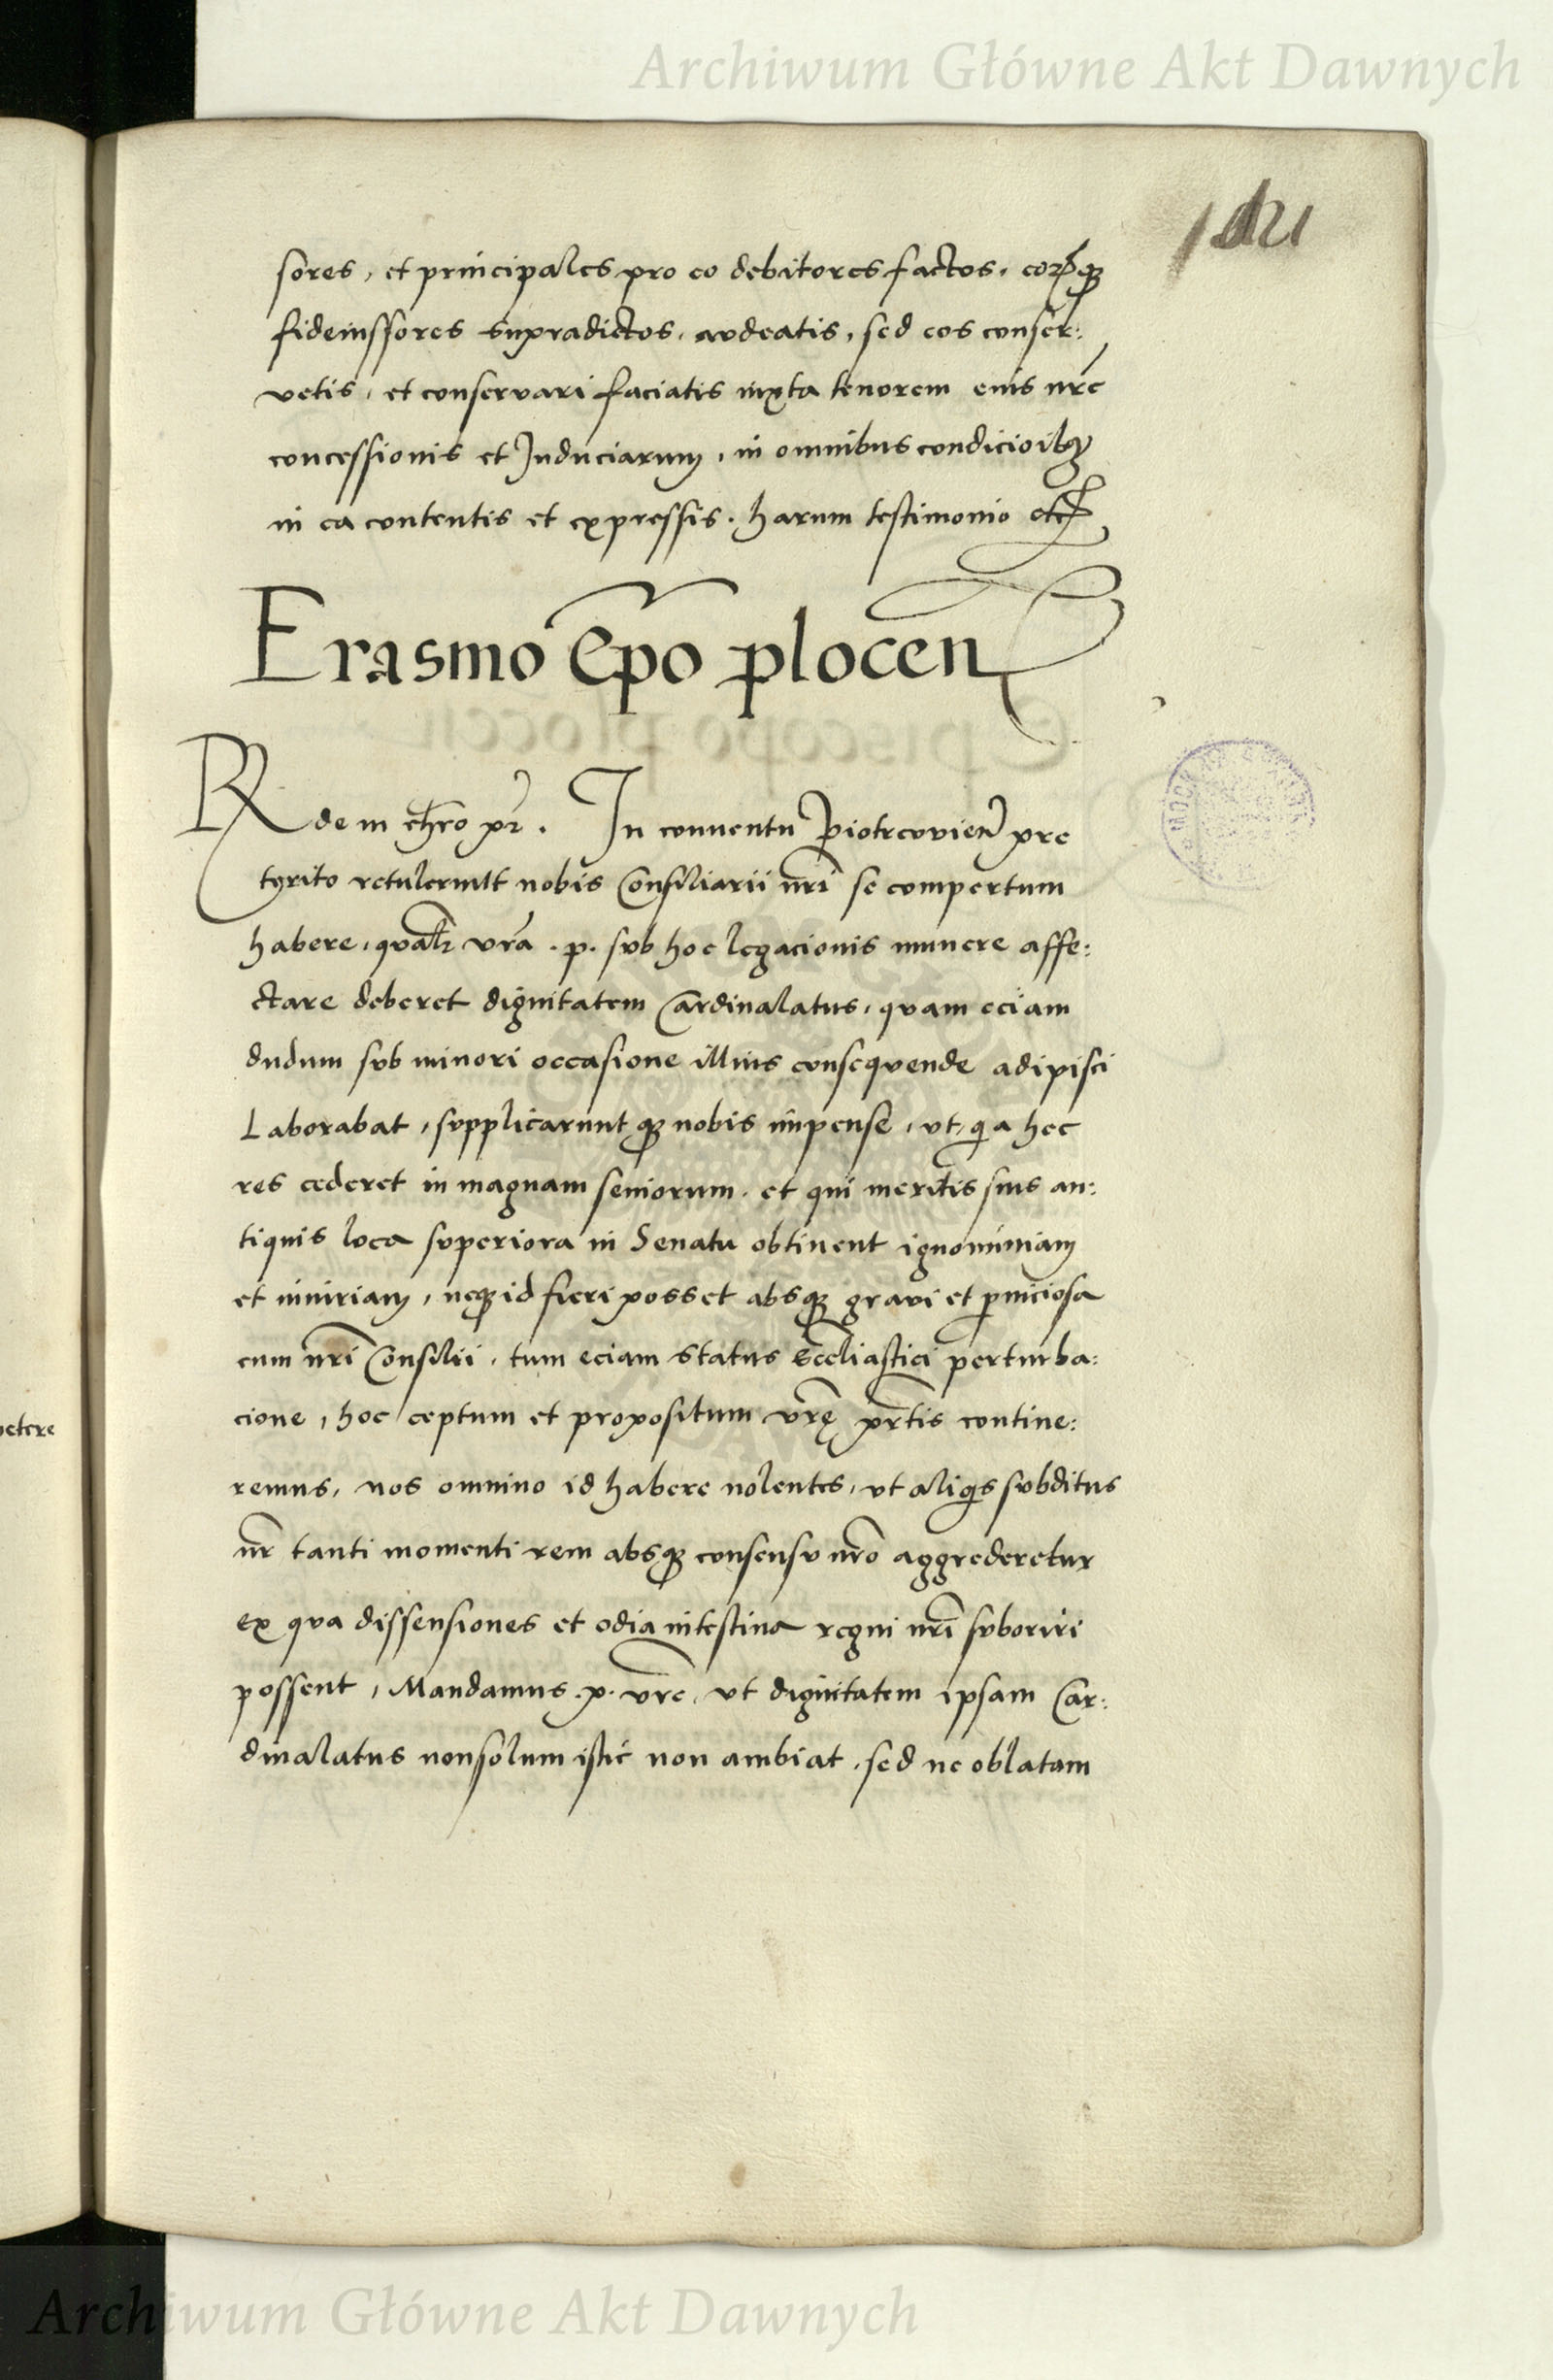 Archiwum Główne Akt Dawnych
sores, et principales pro eo debitores factos, eorumq3
fideiussores supradictos, audeatis, sed eos conser:
vetis, et conservari faciatis iuxta tenorem eius nr̃e
concessionis et Induciarum, in omnibus condicioĩbq3
in ea contentis et expressis. harum testimonio etc
Erasmo Ep̃o plocen̄
Rde in chr̃o pr̃. In conventu Piotrcovien̄ pre
tyrito retulerunt nobis Consiliarii nr̃i se compertum
habere, qualr̃ vr̃a .p. sub hoc legacionis munere affe:
ctare deberet dignitatem Cardinalatus, quam eciam
dudum sub minori occasione illius consequende adipisci
Laborabat, supplicaruntq3 nobis impense, ut, quia hec
res cederet in magnam seniorum, et qui meritis suis an:
tiquis loca superiora in Senatu obtinent ignominiam
et iniuriam, neq3 id fieri posset absq3 gravi et p̱niciosa
cum nr̃i Consilii, tum eciam status Eccl̃iastici perturba:
cione, hoc ceptum et propositum vr̃ę pr̃tis contine:
remus, nos omnino id habere nolentes, ut aliqis subditus
nr̃ tanti momenti rem absq3 consensu nr̃o aggrederetur
ex qua dissensiones et odia intestina regni nr̃i suboriri
possent, Mandamus .p. vr̃e, ut dignitatem ipsam Car:
dinalatus nonsolum istic non ambiat, sed ne oblatam
petere
Archiwum Główne Akt Dawnych